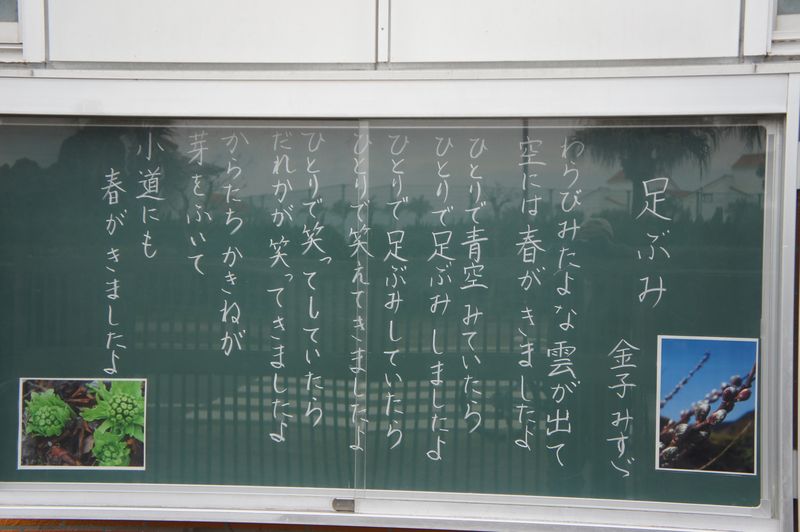 足ぶみ
金子みすゞ
わらびみたよな雲が出て
空には春がきましたよ
ひとりで青空みていたら
ひとりで足ぶみしましたよ
ひとりで足ぶみしていたら
ひとりで笑えてきましたよ
ひとりで笑ってしていたら
だれかが笑ってきましたよ
からたちかきねが
芽をふいて
小道にも
春がきましたよ